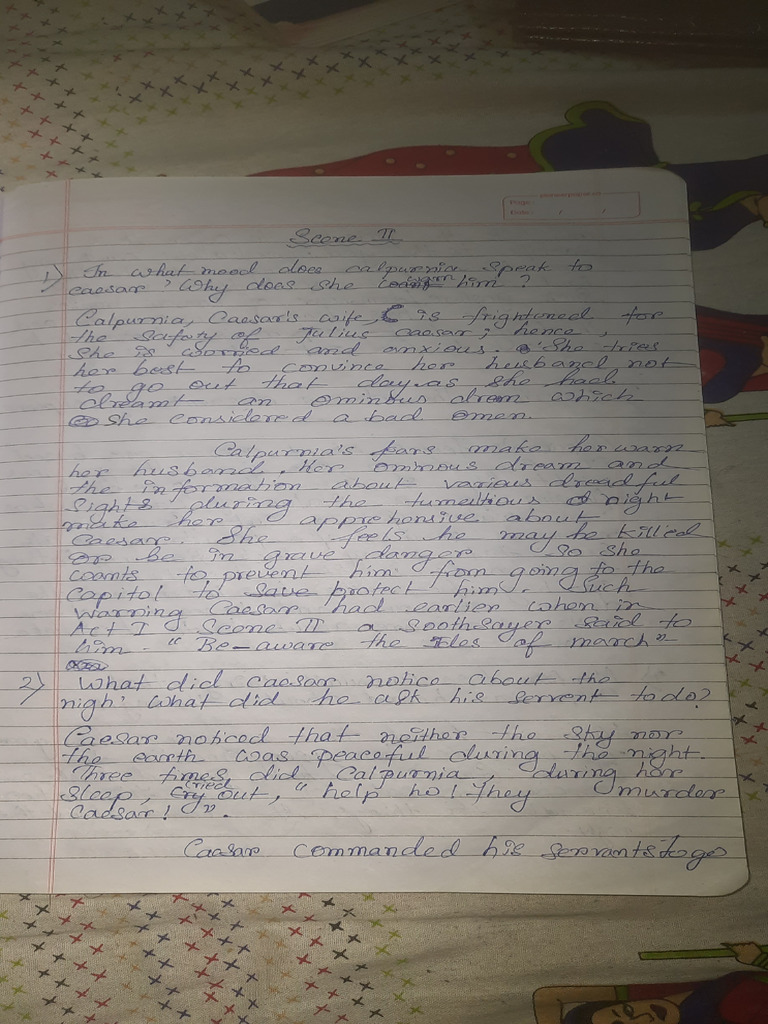 Page:
Date: / /
Scene II
1) In what mood does calpurnia speak to
caesar? Why does she warn him?
Calpurnia, Caesar's wife, C is frightuned for
the safaty of Julius caesar; hence,
She is worried and anxious. She tries
her best to convince her husband not
to go out that day as she had
dreamt an ominous dream which
she considered a bad omen.
Calpurnia's fears make her warn
her husband. Her ominous dream and
the information about various dreadful
Sights during the tumultious night
make her apprehensive about
Caesar. She feels he may be killed
or be in grave danger so she
wants to prevent him from going to the
Capitol to save protect him. Such
warning Caesar had earlier when in
Act I Scene II a Soothsayer said to
him - "Be-aware the Ides of march"
2) What did caesar notice about the
nigh? what did he ask his servent to do?
Caesar noticed that neither the sky nor
the earth was peaceful during the night.
Three times, did Calpurnia, during her
sleep, cry cried out, "help ho! They murder
Caesar!".
Caesar commanded his servants to go